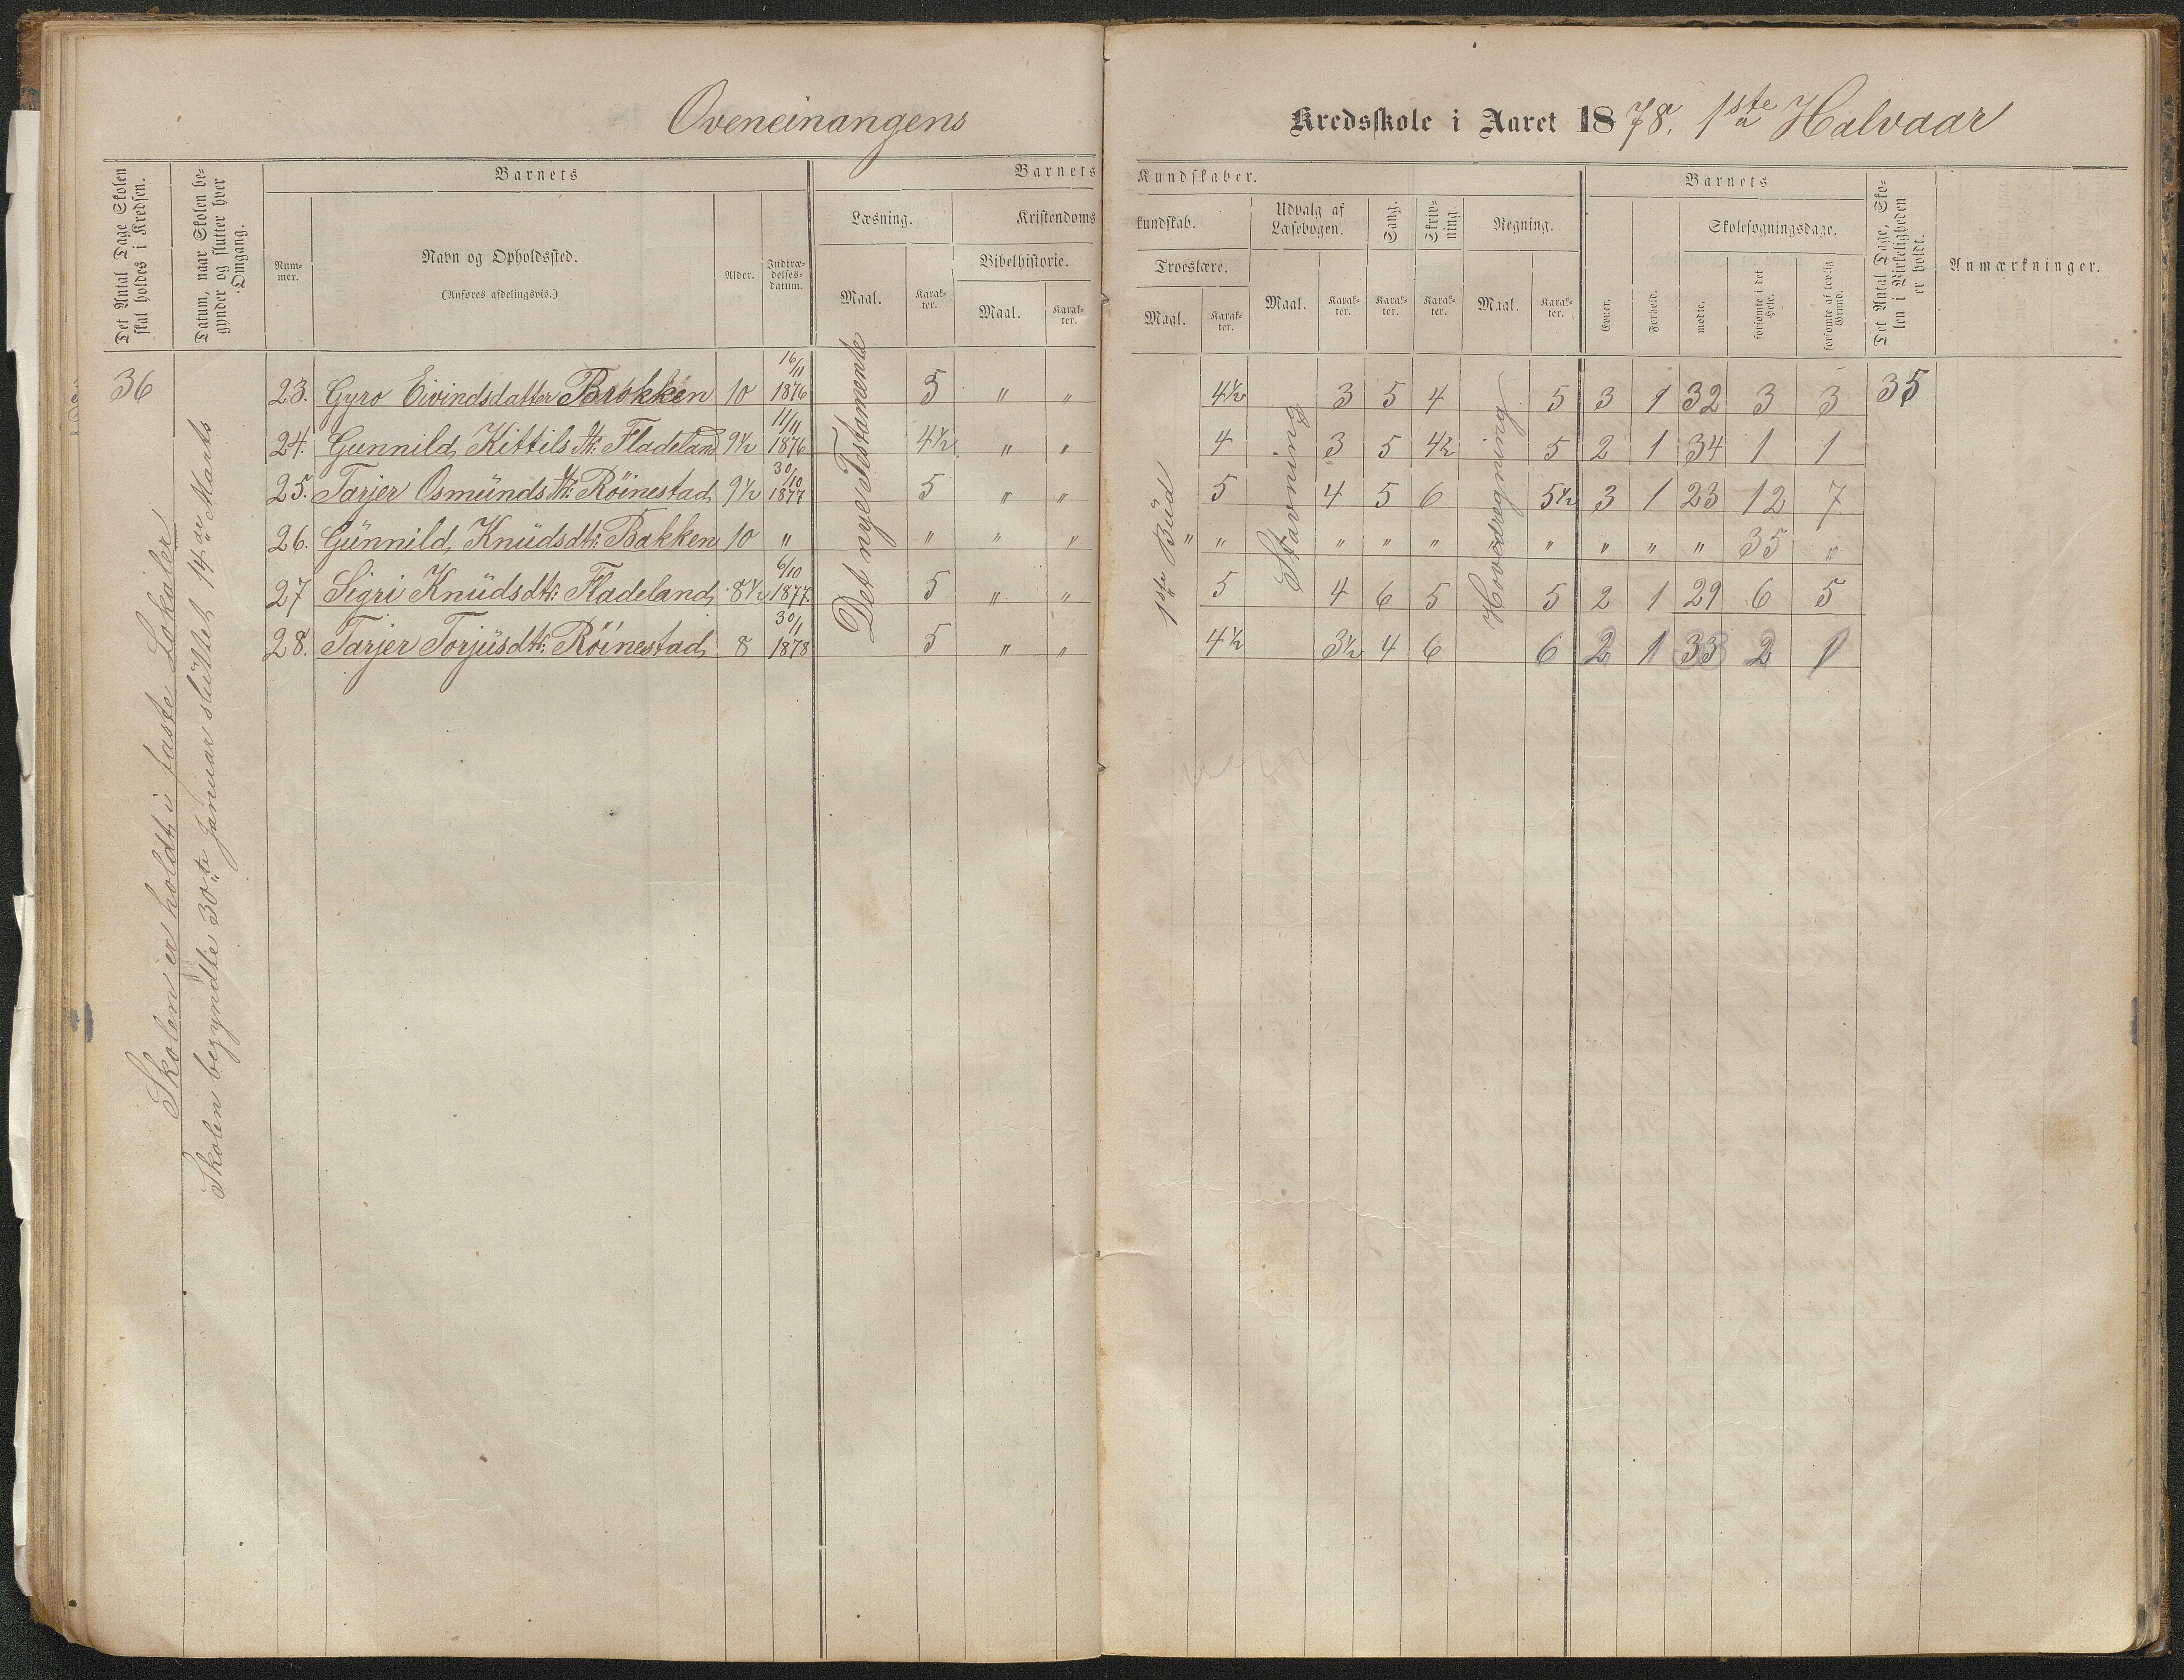 Oveneinangens Kredsskole i Aaret 1878. 1ste Halvaar
Det Antal Dage Skolen skal holdes i Kredsen.
Datum, naar Skolen begynder og slutter hver Omgang.
Barnets
Nummer.
Navn og Opholdssted.
(Anføres afdelingsvis.)
Alder.
Indtrædelses-datum.
Barnets Kundskaber.
Læsning.
Maal.
Karakter.
Kristendomskundskab.
Bibelhistorie.
Maal.
Karakter.
Troeslære.
Maal.
Karakter.
Udvalg af Læsebogen.
Maal.
Karakter.
Sang.
Karakter.
Skrivning
Karakter.
Regning.
Maal.
Karakter.
Barnets
Evner.
Forhold.
Skolesøgningsdage.
mødte.
forsømte i det Hele.
forsømte af lovlig Grund.
Det Antal Dage, Skolen i Virkeligheden er holdt.
Anmærkninger.
36
Skolen er holdt i faste Lokaler
Skolen begyndte 30te Januar sluttet 14de Marts
Det nye Testamente
1ste Büd
Stavning
Hovedregning
23. Gyro Eivindsdatter Brokken 10 16/11 1876 5 " " 4½ 3 5 4 5 3 1 32 3 3 35
24. Gunnild Kittilsdtr: Fladeland 9½ 11/11 1876 4½ " " 4 3 5 4½ 5 2 1 34 1 1
25. Tarjer Osmündsdtr: Röinestad 9½ 30/10 1877 5 " " 5 4 5 6 5½ 3 1 23 12 7
26. Günnild Knüdsdtr: Bakken 10 " " " " " " " " " " " " " 35 "
27 Sigri Knüdsdtr: Fladeland 8½ 6/10 1877. 5 " " 5 4 6 5 5 2 1 29 6 5
28. Tarjer Torjüsdtr: Röinestad 8 30/1 1878 5 " " 4½ 3½ 4 6 6 2 1 33 2 1